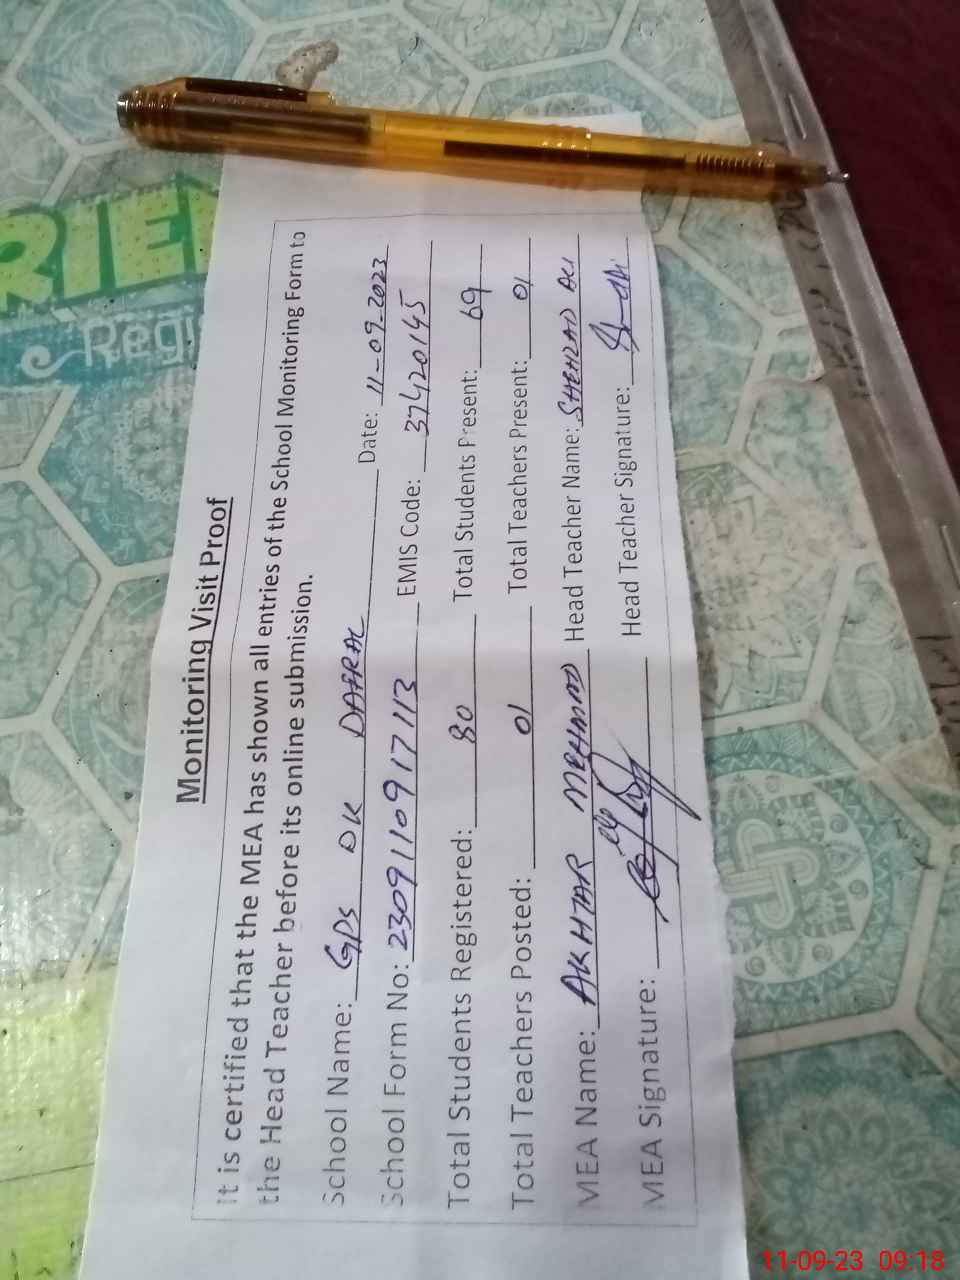 Monitoring Visit Proof
It is certified that the MEA has shown all entries of the School Monitoring Form to
the Head Teacher before its online submission.
School Name: GPS DK DAFRAL Date: 11-09-2023
School Form No: 2309110917113 EMIS Code: 37420145
Total Students Registered: 80 Total Students Present: 69
Total Teachers Posted: 01 Total Teachers Present: 01
MEA Name: AKHTAR MEHMOOD Head Teacher Name: SHEHZAD ALI
MEA Signature: Head Teacher Signature:
RIEN
Regi
11-09-23 09:18